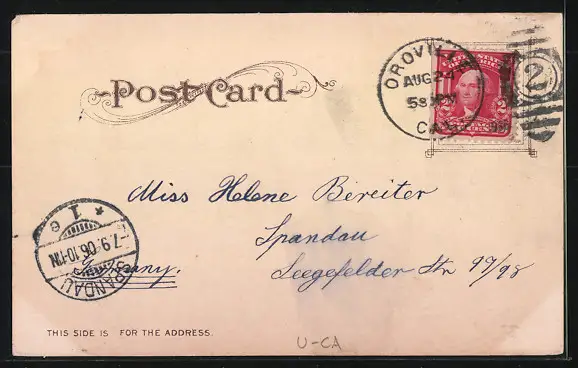 Post Card
OROVILLE
AUG 24
CAL.
2
Miss Helene Bereiter
Spandau
Seegefelder Str 97/98
Germany.
* 1 e
7.9.06.10-11N
SPANDAU
THIS SIDE IS FOR THE ADDRESS.
U-CA